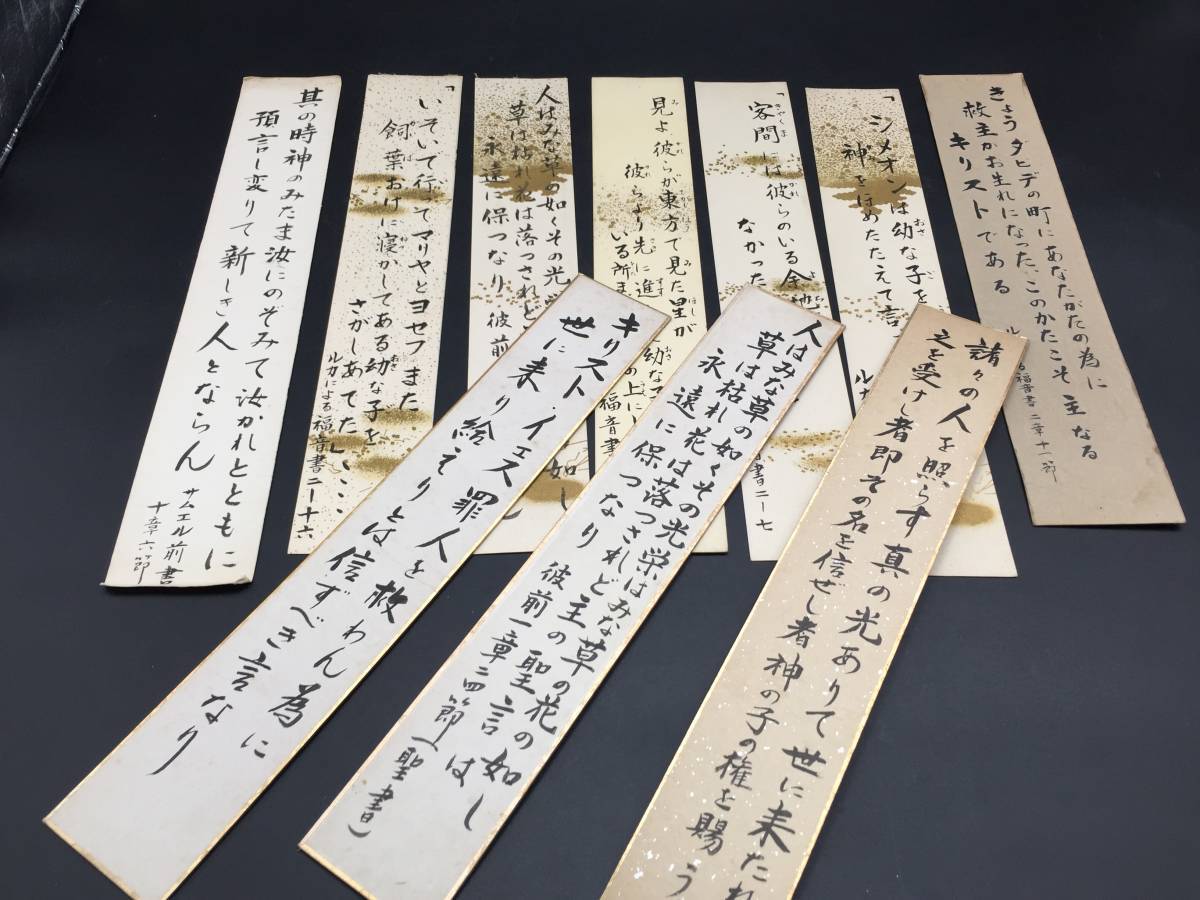 きょうダビデの町にあなたがたの為に
救主がお生れになった、このかたこそ主なる
キリストである
ルカによる福音書二章十一節
「シメオンは幼な子を
神をほめたたえて言
「客間には彼らのいる余地
なかった
書二ー七
見よ彼らが東方で見た星が
彼らより先に進
幼な子
いる所ま
の上に
福音書
人はみな草の如くその光栄
草は枯れ花は落つされど
永遠に保つなり 彼前
如し
「いそいで行ってマリヤとヨセフまた
飼葉おけに寝かしてある幼な子を
さがしあてた」‥‥
ルカによる福音書二ー十六
其の時神のみたま汝にのぞみて汝かれとともに
預言し変りて新しき人とならん
サムエル前書
十章六ヶ節
諸々の人を照らす真の光ありて世に来たれ
之を受けし者即その名を信ぜし者神の子の権を賜う
人はみな草の如くその光栄はみな草の花の如し
草は枯れ花は落つされど主の聖言は
永遠に保つなり 彼前一章二四節(聖書)
キリスト・イエス罪人を救わん為に
世に来り給えりとは信ずべき言なり